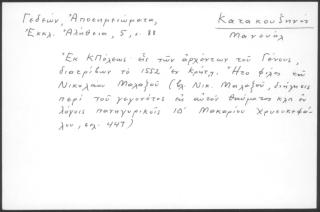 Γεδεών, Ἀποσημειώματα,
Ἐκκλ. Ἀλήθεια, 5, σ. 88
Κατακουζηνὸς
Μανουὴλ
Ἐκ ΚΠόλεως εἰς τῶν ἀρχόντων τοῦ Γένους,
διατρίβων τὸ 1552 ἐν Κρήτῃ. Ἦτο φίλος τοῦ
Νικολάου Μαλαξοῦ (βλ. Νικ. Μαλαξοῦ, διήγησις
περὶ τοῦ γεγονότος εἰς αὐτὸν θαύματος κλπ ἐν
λόγοις πανηγυρικοῖς ΙΔ' Μακαρίου Χρυσοκεφά-
λου, σελ. 447)